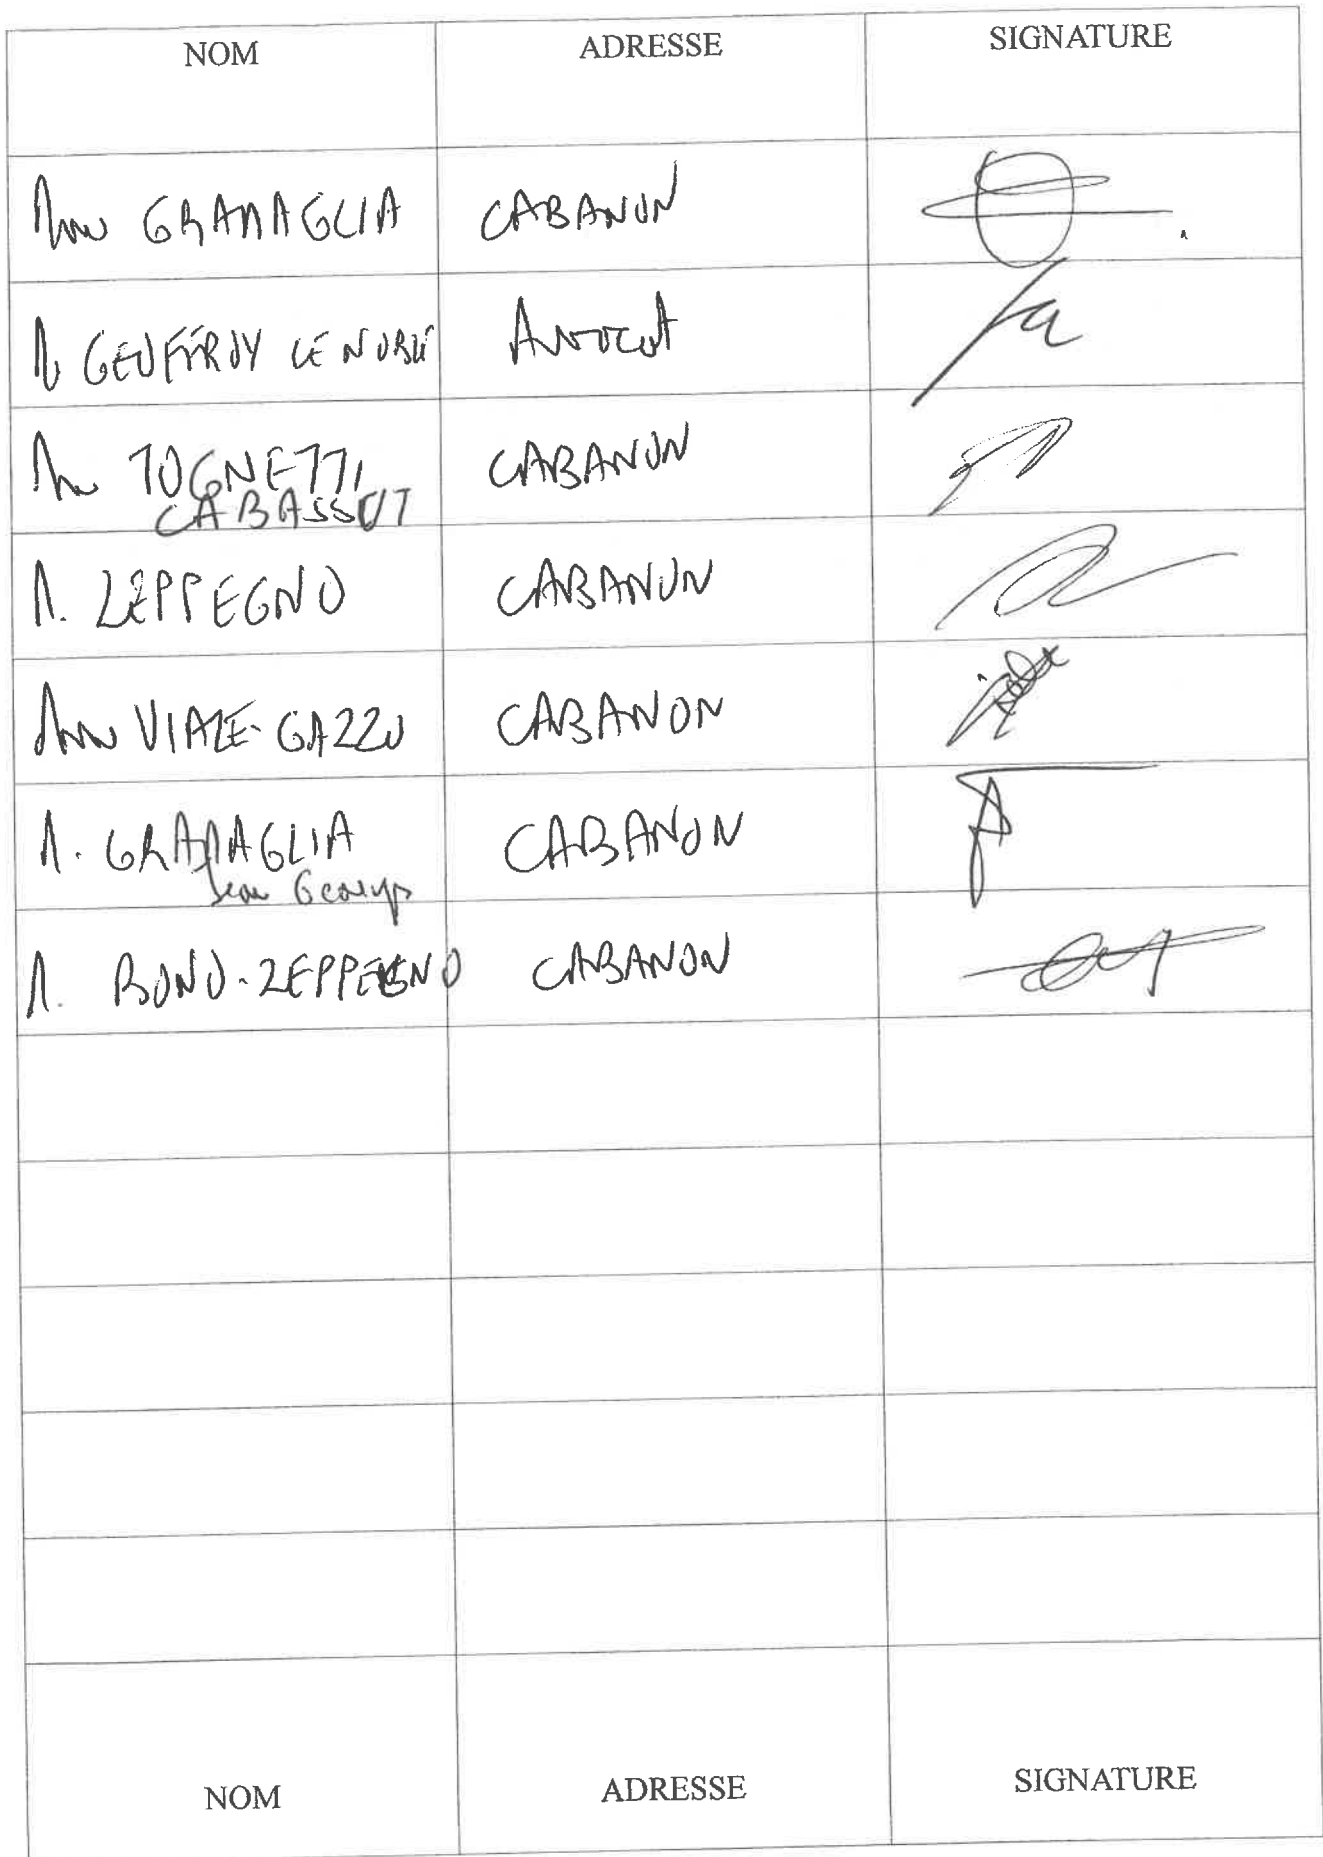 NOM ADRESSE SIGNATURE
Mme GRAMAGLIA CABANON
M GEOFFROY LE NOBLE Avocat
Mme TOGNETTI CABANON
CABASSUT
M. ZEPPEGNO CABANON
Mme VIALE-GAZZO CABANON
M. GRAMAGLIA CABANON
Jean Georges
M. BONO-ZEPPEGNO CABANON
NOM ADRESSE SIGNATURE